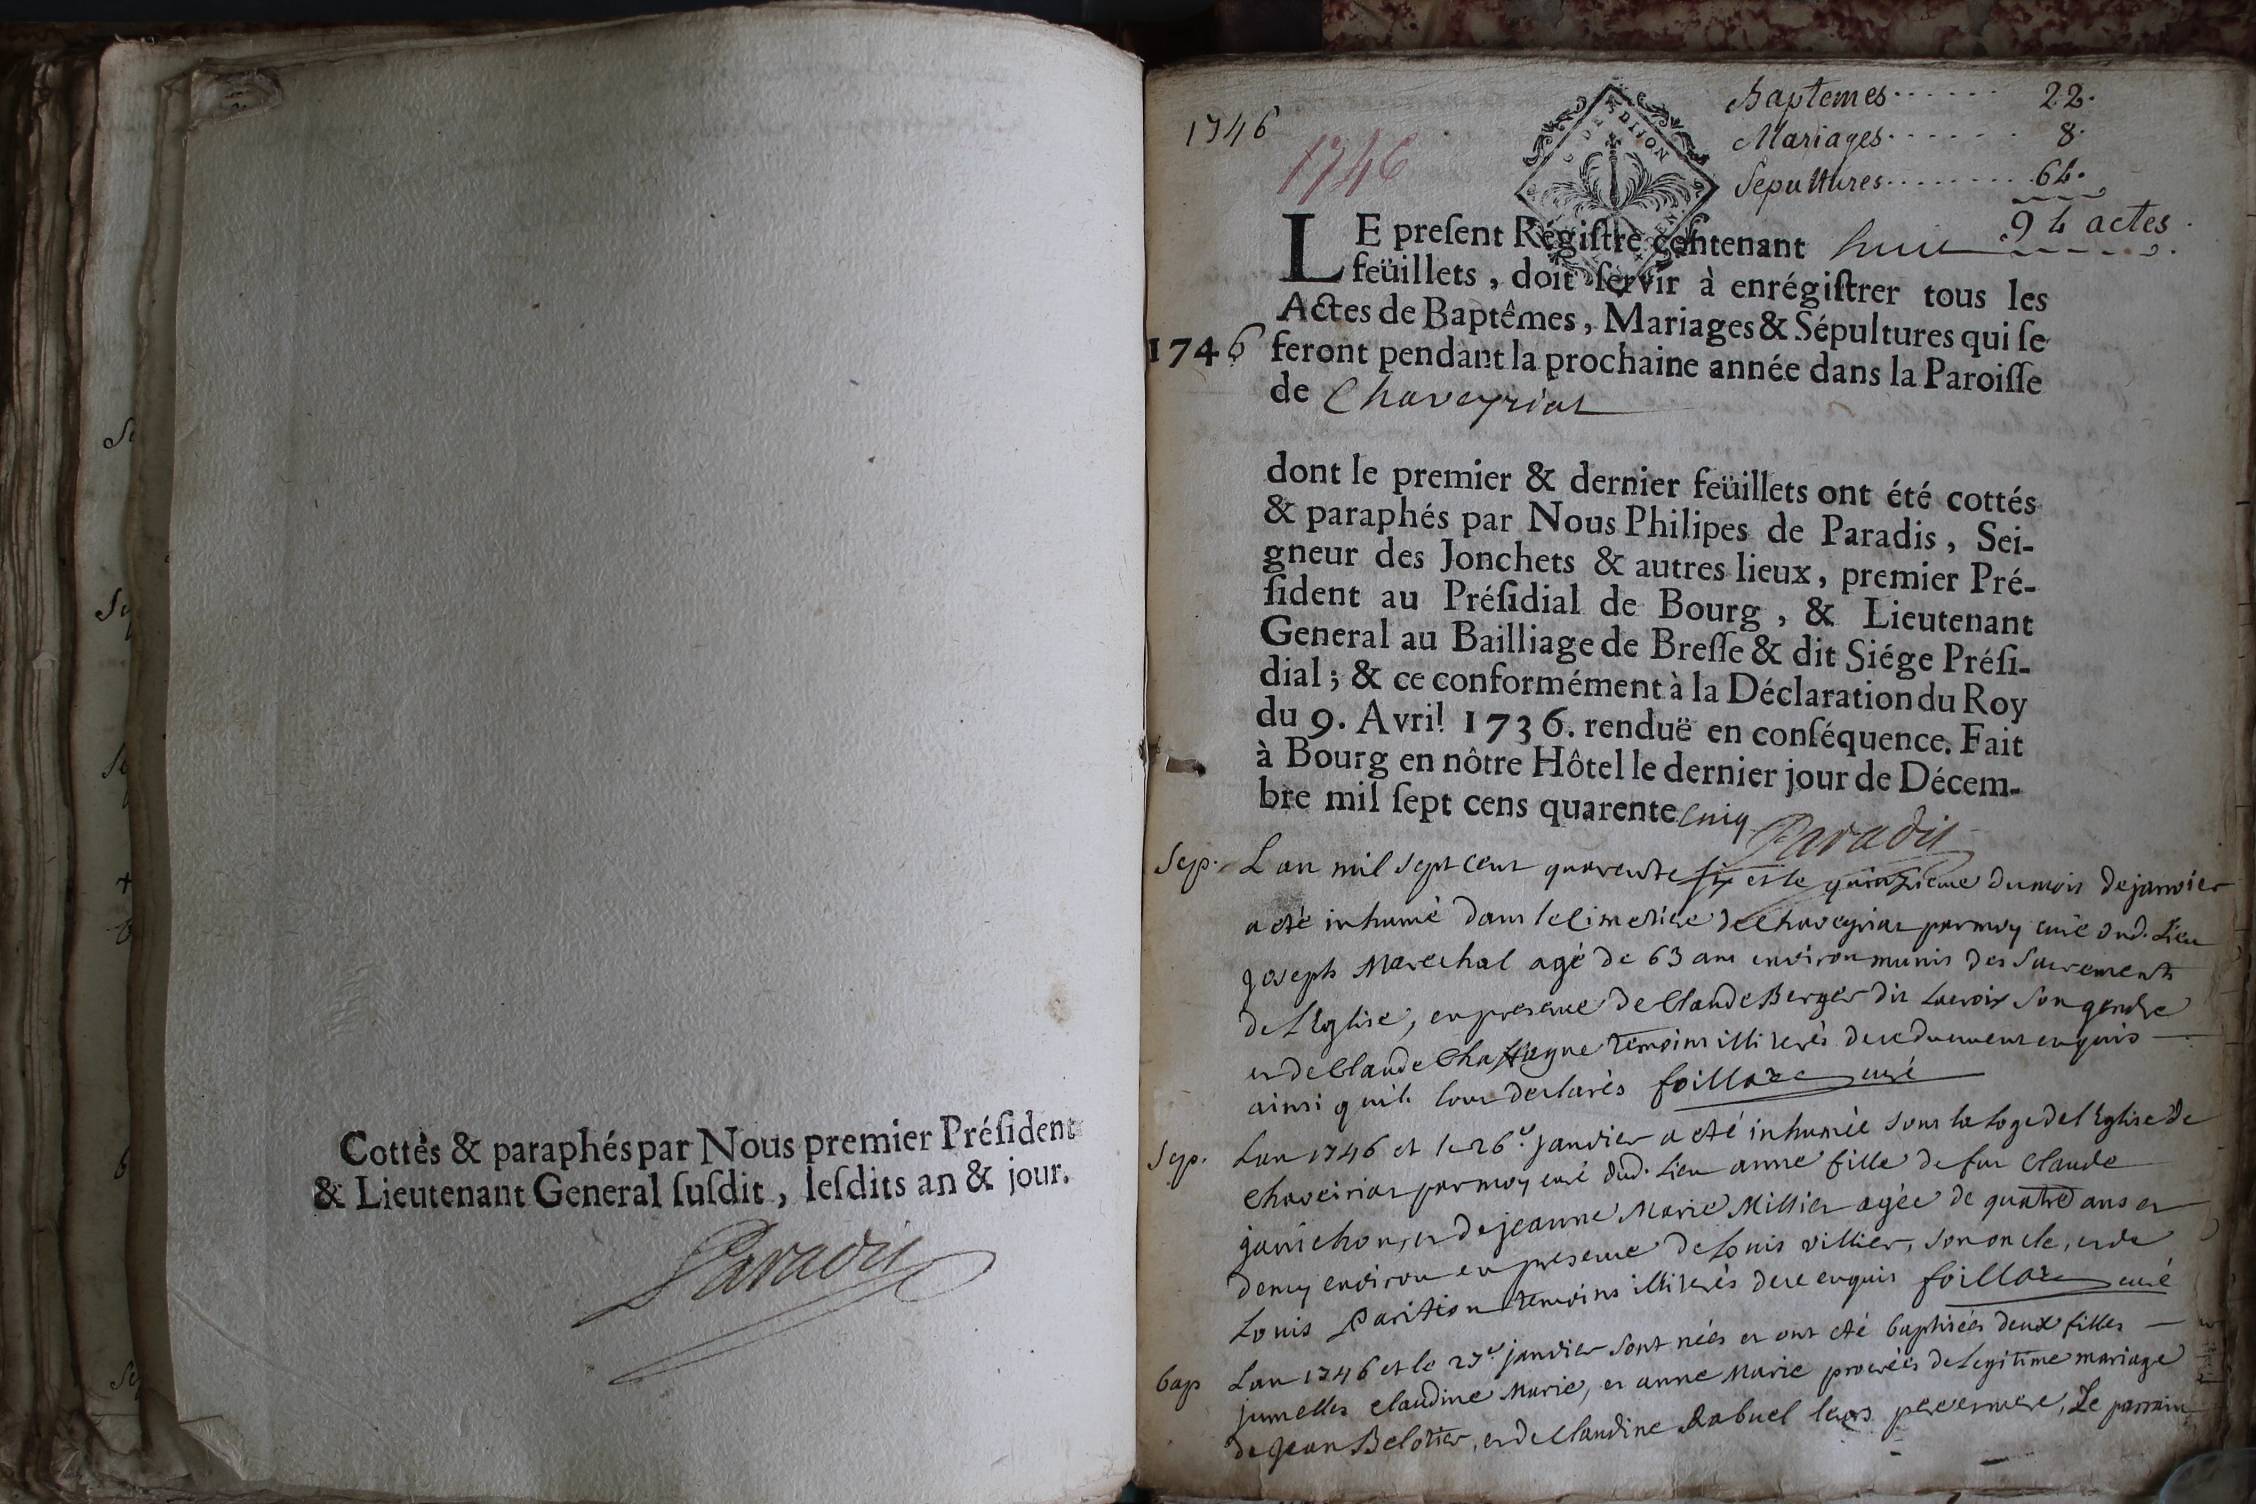 Cottés & paraphés par Nous premier Préſident
& Lieutenant General ſuſdit, leſdits an & jour.
Paradis
1746
1746
Baptemes 22.
Mariages 8.
Sepultures 64.
94 actes
G DE DIJON
LE preſent Régiſtre contenant huit
feüillets, doit ſervir à enrégiſtrer tous les
Actes de Baptêmes, Mariages & Sépultures qui ſe
1746 feront pendant la prochaine année dans la Paroiſſe
de Chaveyriat
dont le premier & dernier feüillets ont été cottés
& paraphés par Nous Philipes de Paradis, Sei-
gneur des Jonchets & autres lieux, premier Pré-
ſident au Préſidial de Bourg, & Lieutenant
General au Bailliage de Breſſe & dit Siége Préſi-
dial; & ce conformément à la Déclaration du Roy
du 9. Avril 1736. renduë en conſéquence. Fait
à Bourg en nôtre Hôtel le dernier jour de Décem-
bre mil ſept cens quarente cinq
Paradis
Sep. L an mil sept cent quarente six et le quinzieme du mois de janvier
a eté inhumé dans le cimetiere de Chaveyriat par moy curé dud. Lieu
joseph Marechal agé de 63 ans environ munis des Sacrements
de l'Eglise, en presence de Claude Berger dit Lacroix Son gendre
et de Claude Chassagne temoins illiterés de ce duement enquis
ainsi quils l'ont declarés foillard curé
Sep. L'an 1746 et le 26e janvier a eté inhumée sous la loge de l'Eglise de
Chaveiriat par moy curé dud. Lieu anne fille de feu Claude
janichon, et de jeanne Marie Millier agée de quatre ans et
demy environ en presence de Louis villier, son oncle, et de
Louis Parition temoins illiterés de ce enquis foillard curé
bap L'an 1746 et le 27e janvier sont nées et ont eté baptisées deux filles
jumelles Claudine Marie, et anne Marie procreés de legitime mariage
de jean Belotier, et de Claudine Rabuel leurs pere et mere, Le parrain